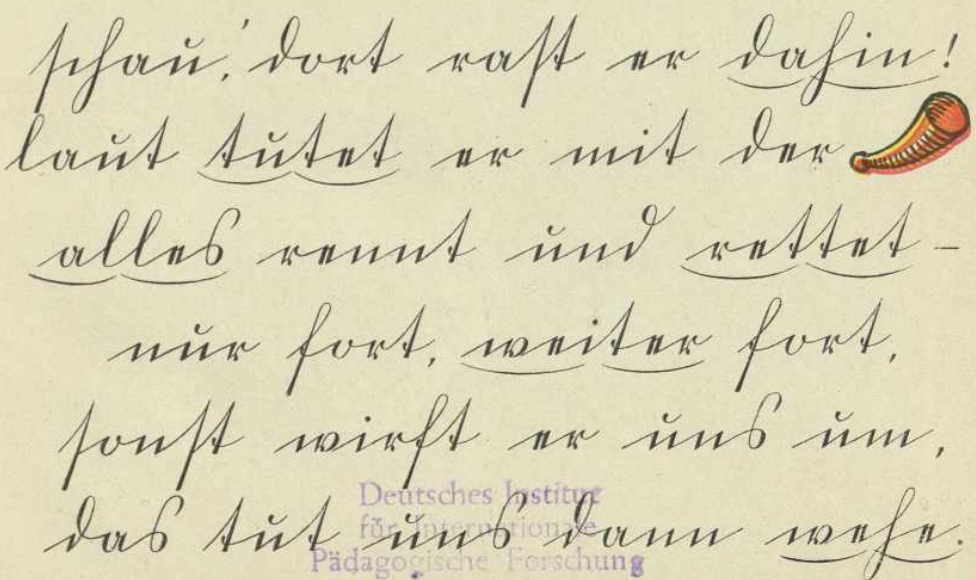 schau, dort rast er dahin!
laut tutet er mit der
alles rennt und rettet –
nur fort, weiter fort,
sonst wirft er uns um,
das tut uns dann wehe.
Deutsches Institut
für Internationale
Pädagogische Forschung